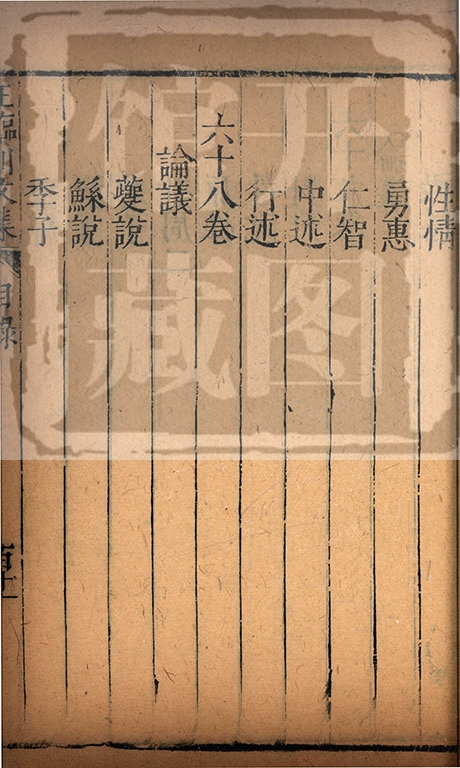 性情
勇惠
仁智
中述
行述
六十八卷
論議
夔說
鯀說
季子
王臨川文集
目錄